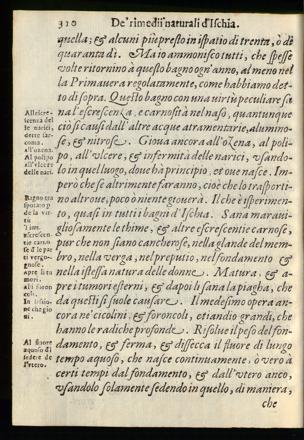 310 De' rimedii naturali d'Ischia.
quella; & alcuni più presto in ispatio di trenta, ò di
quaranta dì. Ma io ammonisco tutti, che spesse
volte ritornino a questo bagno ogn'anno, al meno nel
la Primauera regolatamente, come habbiamo det-
to di sopra. Questo bagno con una virtù peculiare sa
na l'escrescenza, e carnosità nel naso, quantunque
ciò si causi dall'altre acque atramentarie, alumino-
se, & nitrose. Gioua ancora all'ozena, al poli-
po, all'vlcere, & infermità delle narici, vsando-
lo in quel luogo, doue hà principio, et oue nasce. Im-
però che se altrimente faranno, cioè che lo trasporti-
no altroue, poco ò niente giouerà. Il che è isperimen-
to, quasi in tutti i bagni d'Ischia. Sana maraui-
gliosamente le thime, & altre escrescentie carnose,
pur che non siano cancherose, nella glande del mem-
bro, nella verga, nel preputio, nel fondamento &
nella istessa natura delle donne. Matura, & a-
pre i tumori esterni, & dapoi li sana la piagha, che
da questi si suole causare. Il medesimo opera an-
cora ne' ciccolini, & foroncoli, etiandio grandi, che
hanno le radiche profonde. Risolue il peso del fon-
damento, & ferma, & dissecca il fluore di lungo
tempo aquoso, che nasce continuamente, ò verò a
certi tempi dal fondamento, & dall'vtero anco,
vsandolo solamente sedendo in quello, di maniera,
che
All'escre-
scenza del
le narici,
dette sar-
coma.
all'ozena.
Al polipo
all'vlcere
delle nari.
Bagno tra
sportato p
de la vir-
tù
Timi.
escrescen-
tie carno
se d le par
ti vergo-
gnose.
apre li tu
mori.
Al fluore
aquoso di
sedere de
l'vtero.